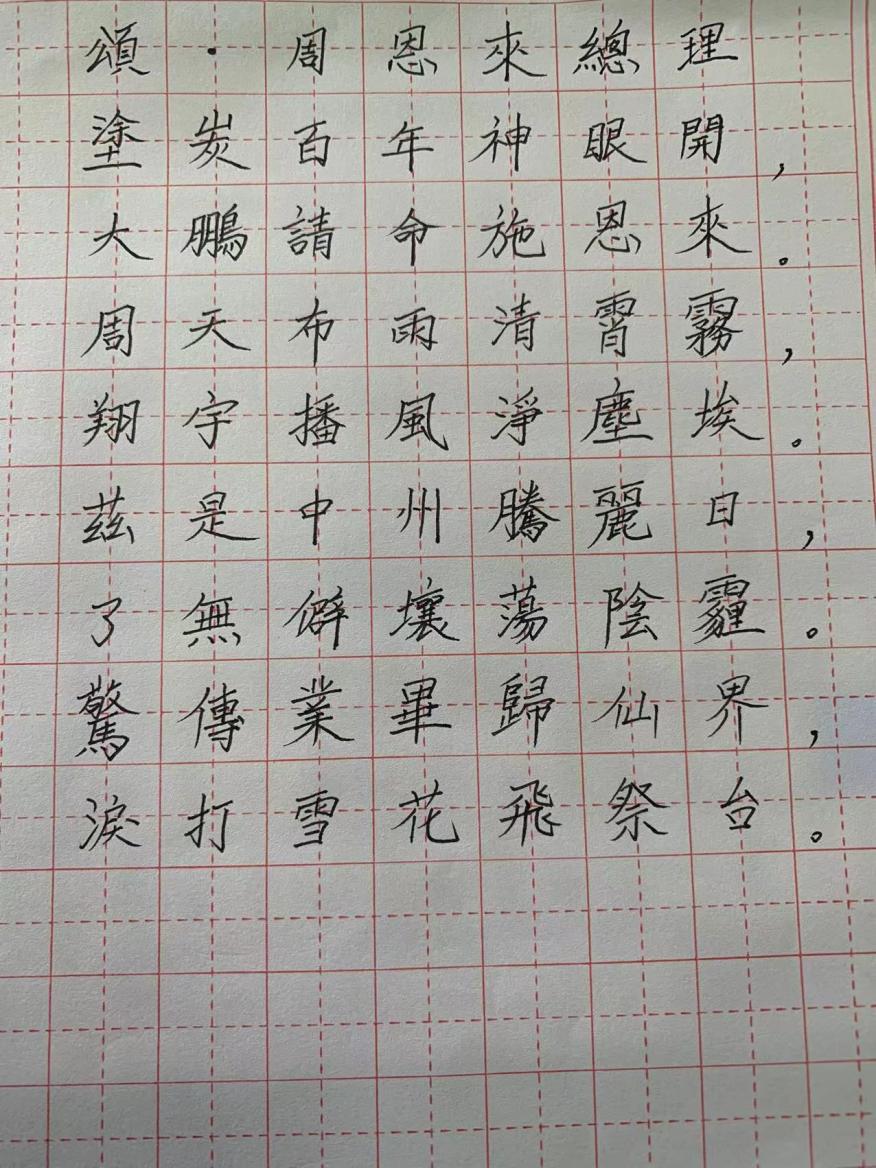 頌·周恩來總理
塗炭百年神眼開，
大鵬請命施恩來。
周天布雨清霄霧，
翔宇播風淨塵埃。
茲是中州騰麗日，
了無僻壤蕩陰霾。
驚傳業畢歸仙界，
淚打雪花飛祭台。